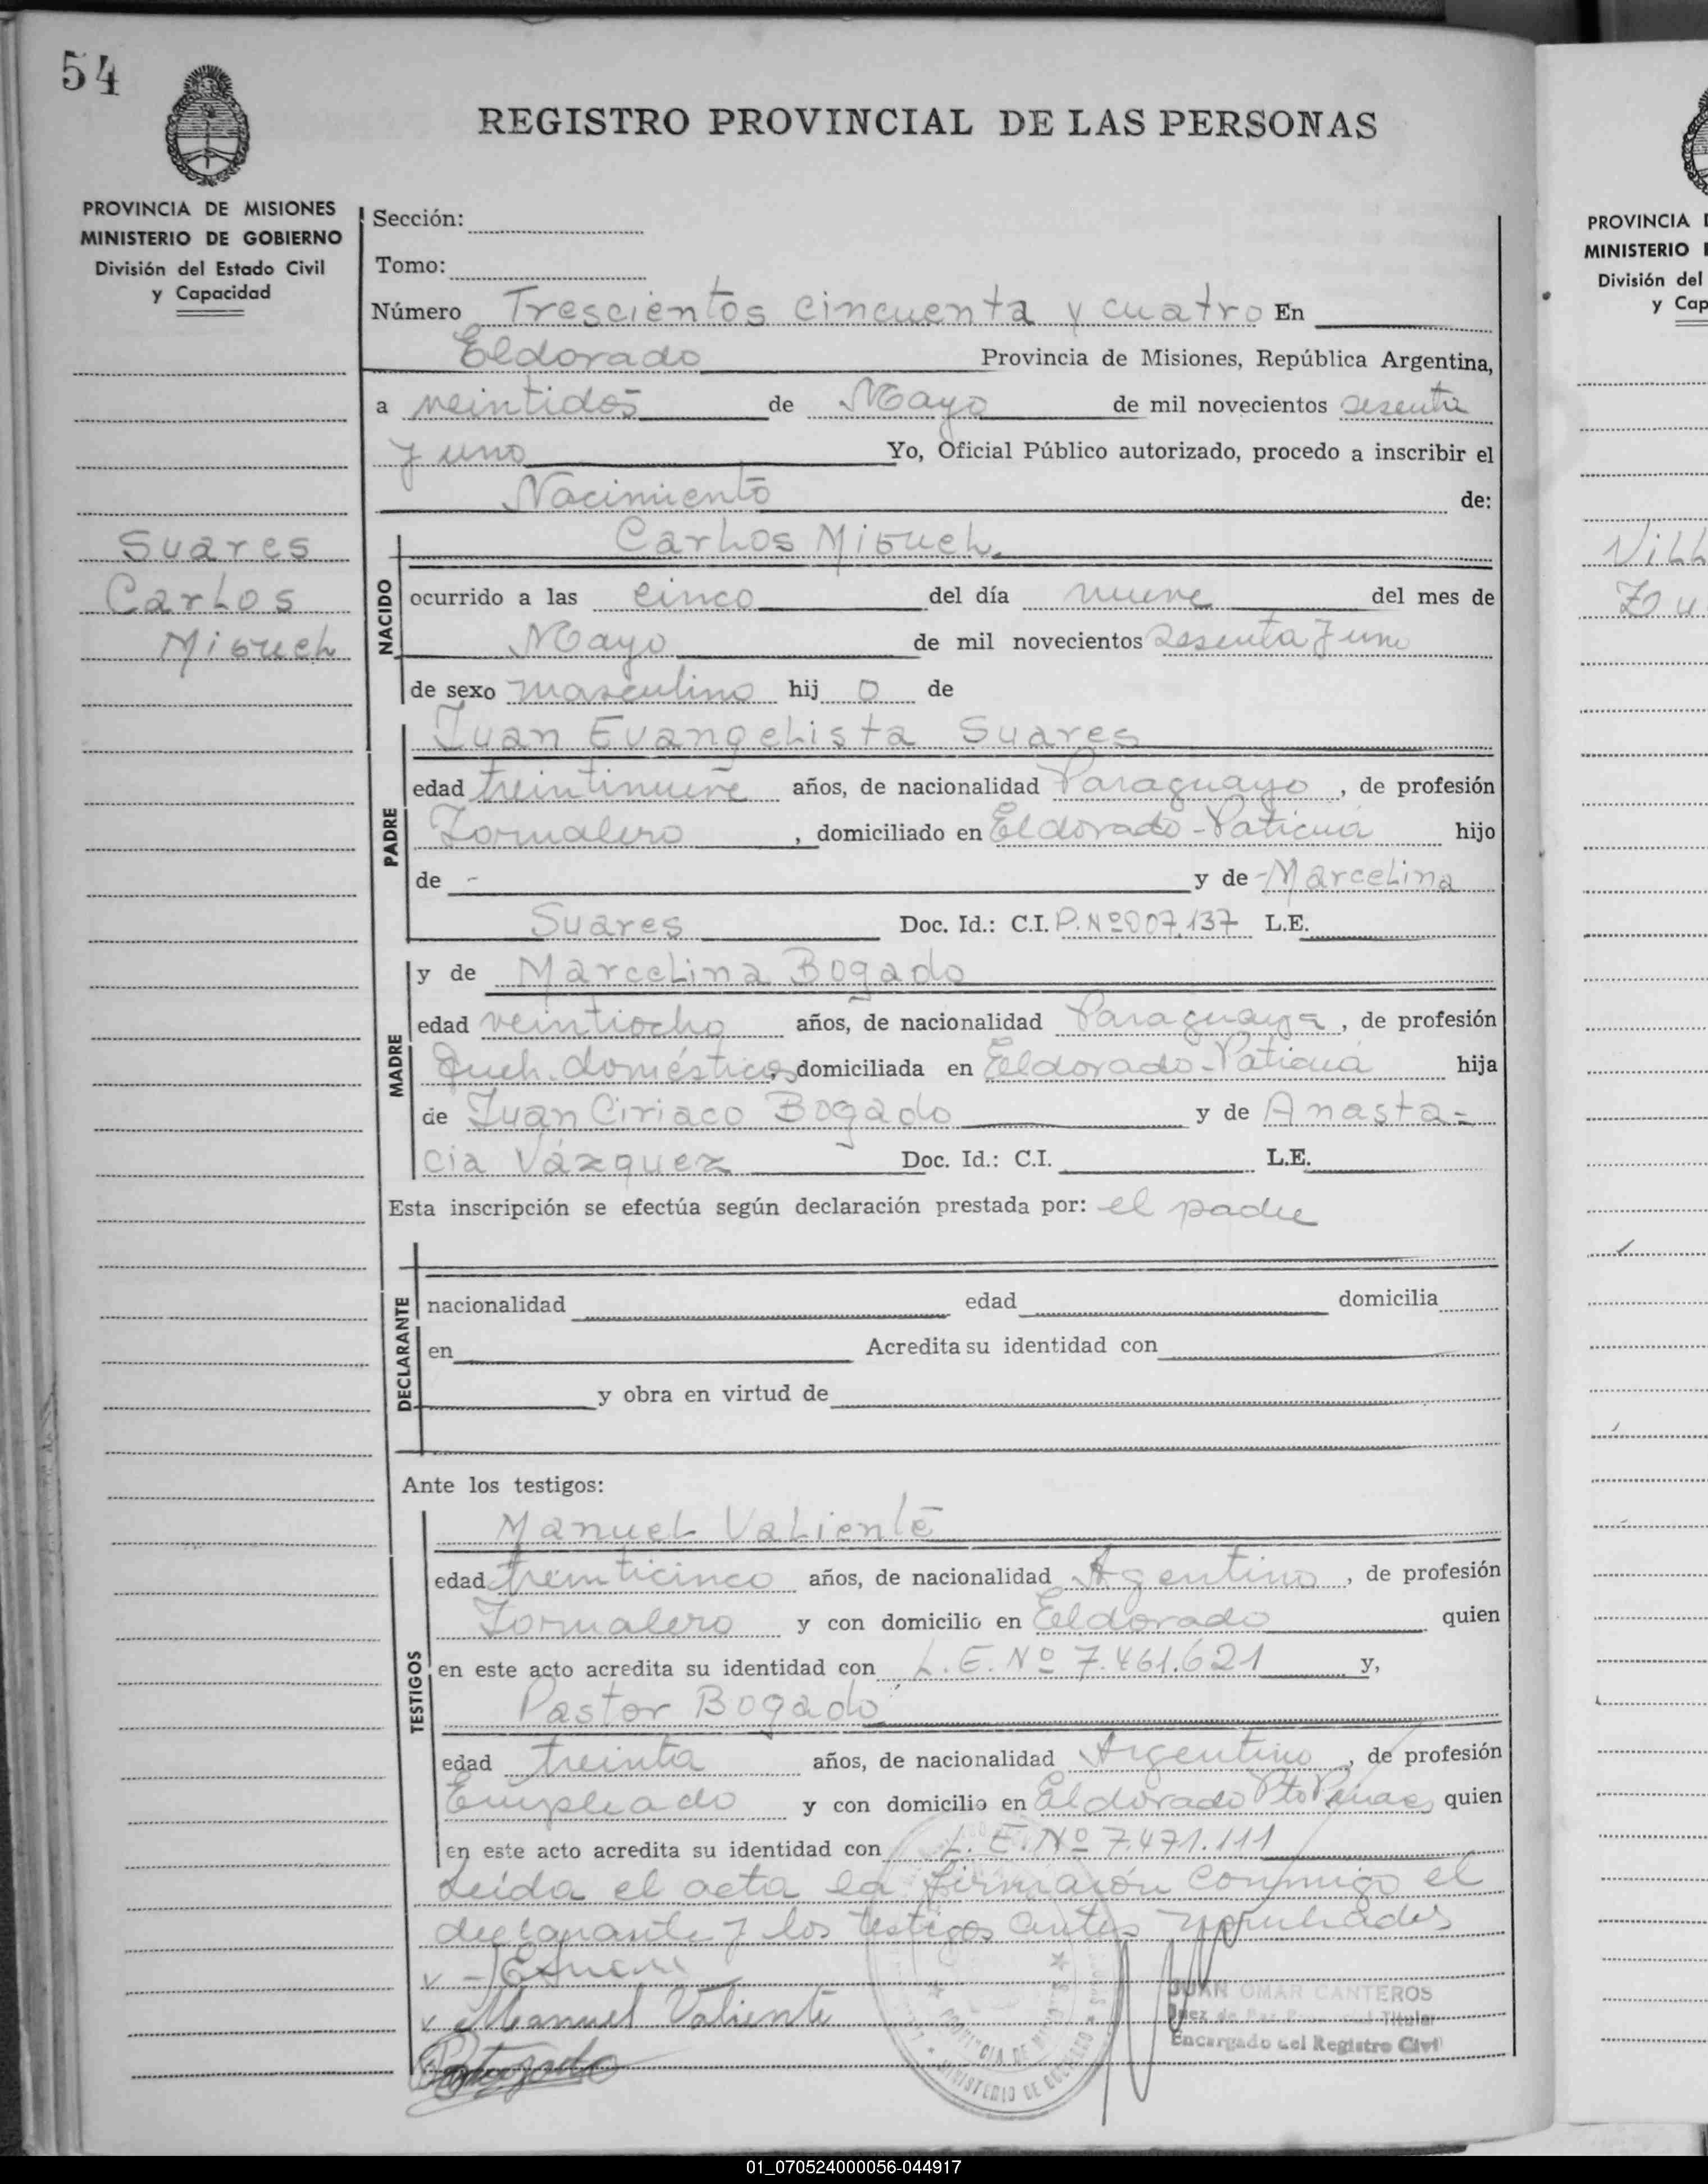 54
REGISTRO PROVINCIAL DE LAS PERSONAS
PROVINCIA DE MISIONES
MINISTERIO DE GOBIERNO
División del Estado Civil
y Capacidad
Suares
Carlos
Miguel
Sección:
Tomo:
Número Trescientos cincuenta y cuatro En
Eldorado Provincia de Misiones, República Argentina,
a veintidos de Mayo de mil novecientos sesenta
y uno Yo, Oficial Público autorizado, procedo a inscribir el
Nacimiento de:
NACIDO
Carlos Miguel
ocurrido a las cinco del día nueve del mes de
Mayo de mil novecientos sesenta y uno
de sexo masculino hij o de
PADRE
Juan Evangelista Suares
edad treintinueve años, de nacionalidad Paraguayo, de profesión
Jornalero, domiciliado en Eldorado-Paticuá hijo
de - y de Marcelina
Suares Doc. Id.: C.I. P. Nº 907.137 L.E.
MADRE
y de Marcelina Bogado
edad veintiocho años, de nacionalidad Paraguaya, de profesión
Queh. domésticos, domiciliada en Eldorado-Paticuá hija
de Juan Ciriaco Bogado y de Anasta=
cia Vázquez Doc. Id.: C.I. L.E.
Esta inscripción se efectúa según declaración prestada por: el padre
DECLARANTE
nacionalidad edad domicilia
en Acredita su identidad con
y obra en virtud de
Ante los testigos:
TESTIGOS
Manuel Valiente
edad treinticinco años, de nacionalidad Argentino, de profesión
Jornalero y con domicilio en Eldorado quien
en este acto acredita su identidad con L.E. Nº 7.461.621 y,
Pastor Bogado
edad treinta años, de nacionalidad Argentino, de profesión
Empleado y con domicilio en Eldorado Pto quien
en este acto acredita su identidad con L.E. Nº 7.471.111
Leida el acta la firmarón conmigo el
declarante y los testigos antes nombrados
Manuel Valiente
JUAN OMAR CANTEROS
Juez de Paz Titular
Encargado del Registro Civil
MINISTERIO DE GOBIERNO
PROVINCIA
MINISTERIO
División del
y Cap
01_070524000056-044917